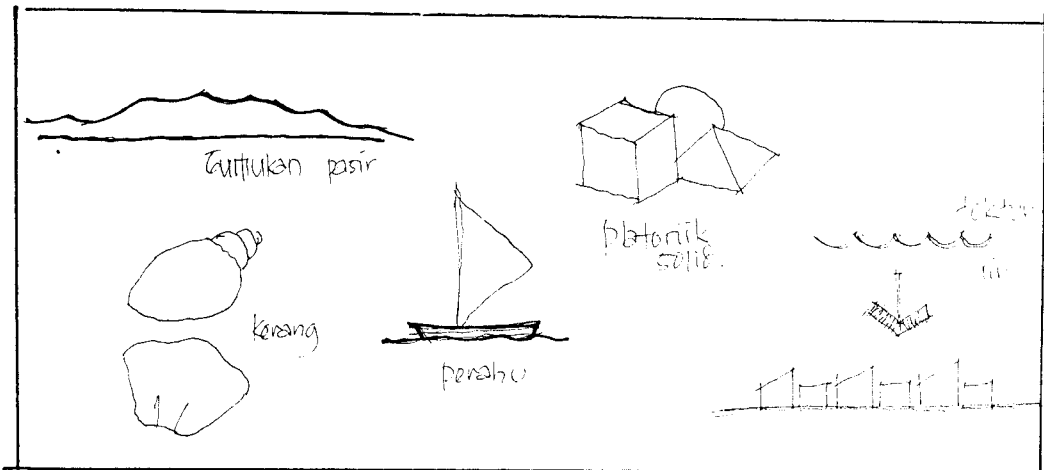 Tumukan pasir
platonik
solid.
kerang
perahu